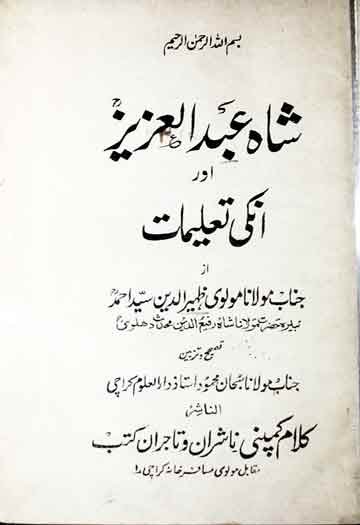 بسم اللہ الرحمٰن الرحیم
شاہ عبد العزیزؒ
اور
انکی تعلیمات
از
جناب مولانا مولوی ظہیر الدین سید احمدؒ
نبیرہ حضرت مولانا شاہ رفیع الدین محدث دھلویؒ
تصحیح و تزیین
جناب مولانا سبحان محمود استاذ دار العلوم کراچی
الناشر
کلام کمپنی ناشران و تاجران کتب
مقابل مولوی مسافر خانہ کراچی ۱